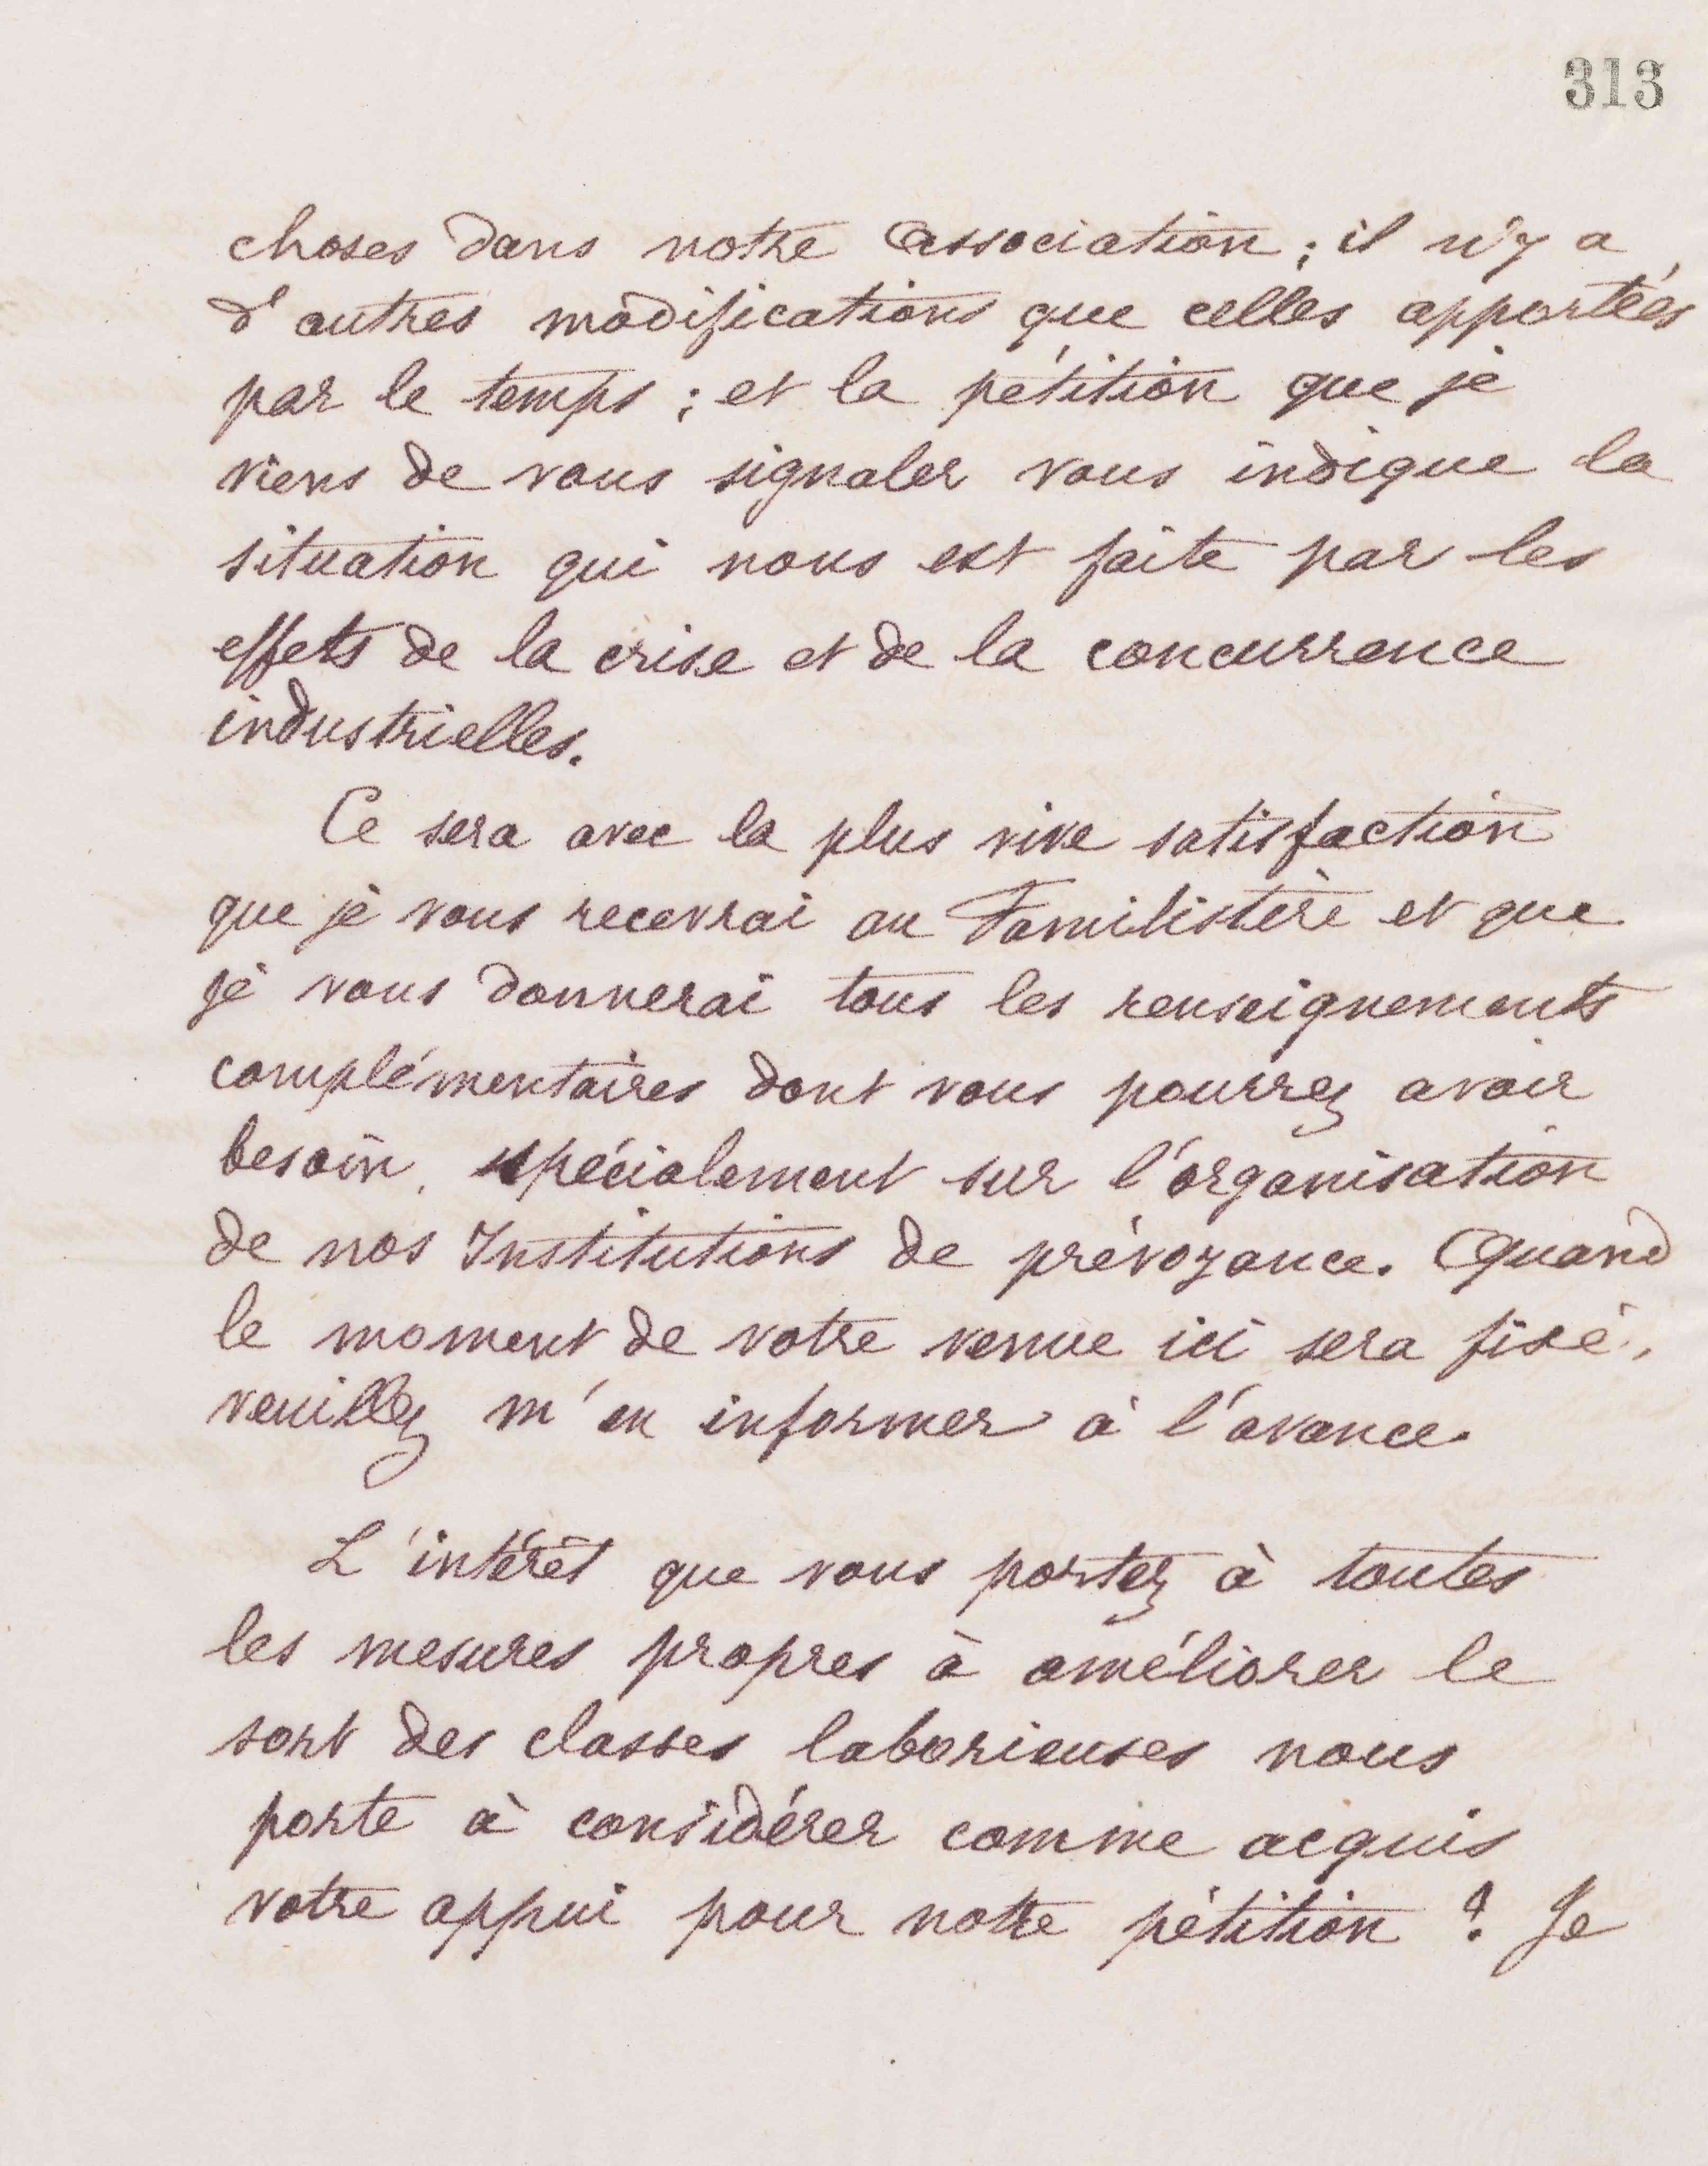 313
choses dans notre Association ; il n'y a
d'autres modifications que celles apportées
par le temps ; et la pétition que je
viens de vous signaler vous indique la
situation qui nous est faite par les
effets de la crise et de la concurrence
industrielles.
Ce sera avec la plus vive satisfaction
que je vous recevrai au Familistère et que
je vous donnerai tous les renseignements
complémentaires dont vous pourrez avoir
besoin, spécialement sur l'organisation
de nos Institutions de prévoyance. Quand
le moment de votre venue ici sera fixé,
veuillez m'en informer à l'avance.
L'intérêt que vous portez à toutes
les mesures propres à améliorer le
sort des classes laborieuses nous
porte à considérer comme acquis
votre appui pour notre pétition ? Je